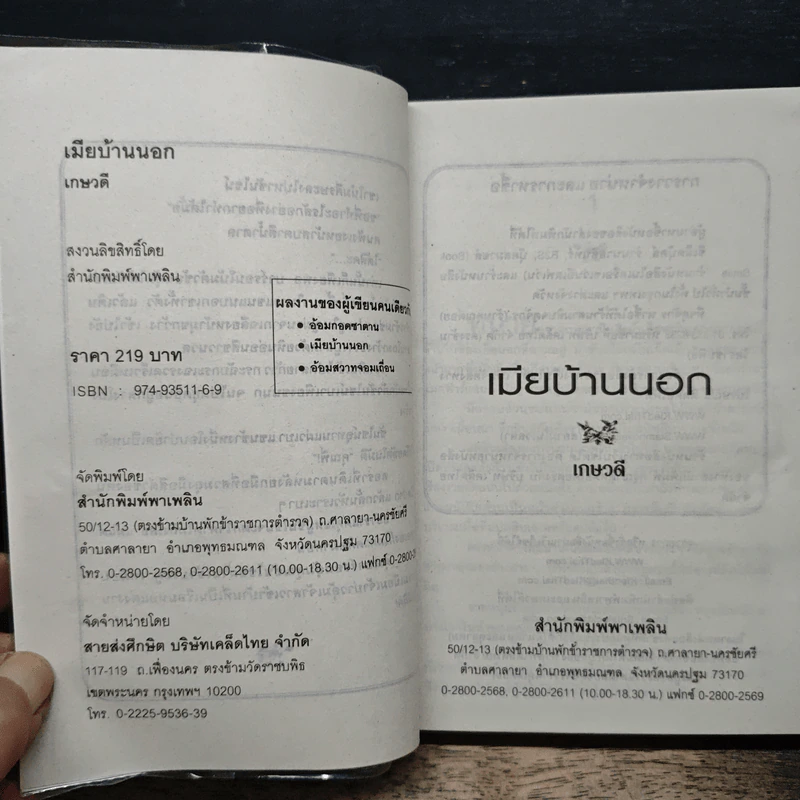 เมียบ้านนอก
เกษวดี
สงวนลิขสิทธิ์โดย
สำนักพิมพ์พาเพลิน
ผลงานของผู้เขียนคนเดียวกั
• อ้อมกอดซาตาน
• เมียบ้านนอก
• อ้อมสวาทจอมเถื่อน
ราคา 219 บาท
ISBN : 974-93511-6-9
จัดพิมพ์โดย
สำนักพิมพ์พาเพลิน
50/12-13 (ตรงข้ามบ้านพักข้าราชการตำรวจ) ถ.ศาลายา-นครชัยศรี
ตำบลศาลายา อำเภอพุทธมณฑล จังหวัดนครปฐม 73170
โทร. 0-2800-2568, 0-2800-2611 (10.00-18.30 น.) แฟกซ์ 0-2800-
จัดจำหน่ายโดย
สายส่งศึกษิต บริษัทเคล็ดไทย จำกัด
117-119 ถ.เฟื่องนคร ตรงข้ามวัดราชบพิธ
เขตพระนคร กรุงเทพฯ 10200
โทร. 0-2225-9536-39
เมียบ้านนอก
เกษวดี
สำนักพิมพ์พาเพลิน
50/12-13 (ตรงข้ามบ้านพักข้าราชการตำรวจ) ถ.ศาลายา-นครชัยศรี
ตำบลศาลายา อำเภอพุทธมณฑล จังหวัดนครปฐม 73170
0-2800-2568, 0-2800-2611 (10.00-18.30 น.) แฟกซ์ 0-2800-2569